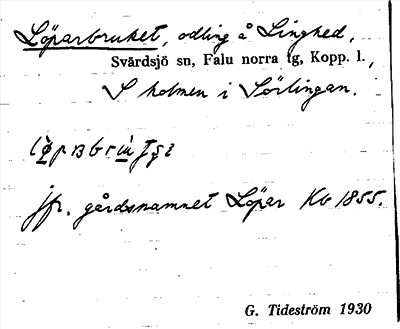 Löparbruket, odling å Linghed,
Svärdsjö sn, Falu norra tg, Kopp. l.,
S holmen i Sörlingan.
jfr. gårdsnamnet Löpar Kb 1855.
G. Tideström 1930